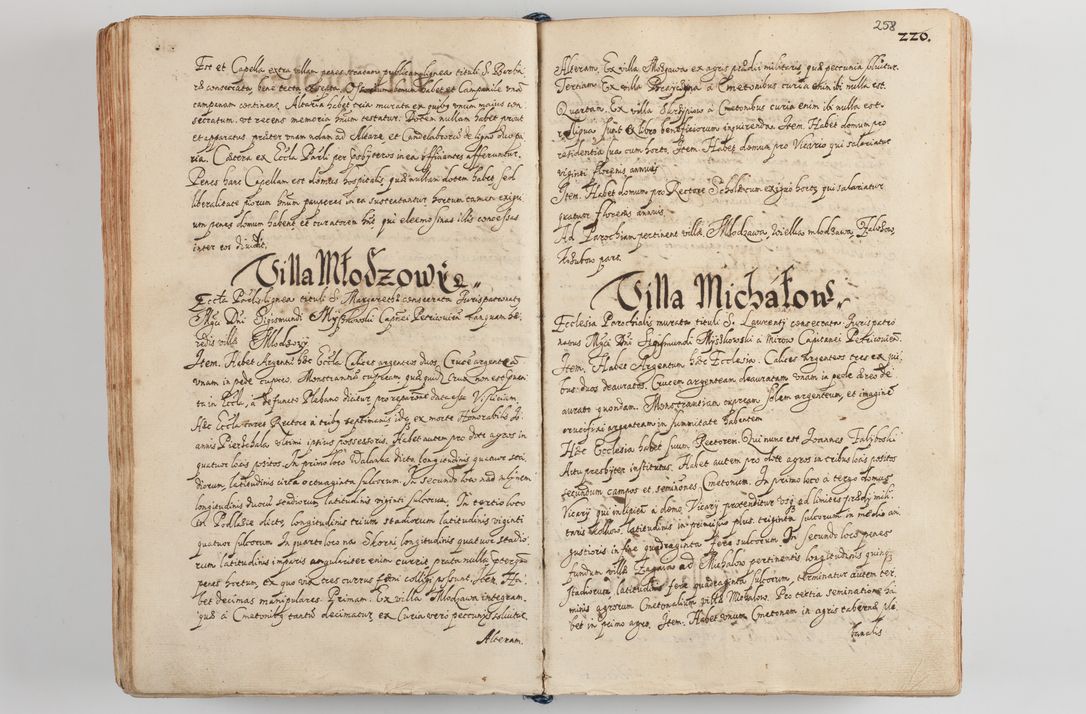 Est et Capella extra villam penes stratam publicam lignea tituli S. Barba
rę consecrata, bene tecta habet et Campanile unā
campanam continens. Altaria habet tria murata ex quibꝫ unum maius con
secratum, ut recens memoria testatur. Dotem nullam habet prout
et apparatus, pręter unam ad Altare et Candelabrorū de ligno
ria. Cętera ex Eccla Parli per in ea afferuntur.
Penes hanc Capellam est domus hospitalis, quę nullam dotem habet sed
liberalitate piorum pauperes in ea sustentantur. hortum tamen exigu
um penes domum habent, et curatorem qui eleemosinas illis concessas
inter eos
Villa Młodzowÿe
Eccla Parlis lignea tituli S. Margarethę consecrata Jurispatronatꝰ
Mgci Dni Sigismundi Mÿsskowski Capnei Petricouien̄ tanquam hę
redis villę Młodzowÿ
Item. Habet Argenti hęc Eccla Calices argenteos duos, Cruce argenteā
unam in pede cupreo. Monstrantiā cupream quę quid Crux non est
ta in Eccl. a defuncto Plebano dicitur pro reparatione data esse
Hęc Eccla caret Rectore a tribꝫ septimanis ex morte Honorabilis Jo
annis Pierzchala ultimi ipsius possessoris. Habet autem pro dote agros in
quatuor locis positos. In primo loco dicta longitudinis quatuor sta
diorum, latitudinis circa octuaginta sulcorum. In secundo loco nad młynem
longitudinis duorū stadiorum latitudinis viginti sulcorum. In tertio loco
in Podlesie dicto, longitudinis trium stadiorum latitudinis viginti
quatuor sulcorum. In quarto loco na Skorni longitudinis quatuor stadio
rum latitudinis imparis angulariter enim currit, prata nulla pręterq̄
penes hortum, ex quo vix tres currus fęni colligi possunt. Item. Ha
bet decimas manipulares. Primam. Ex villa Mlodzawa integram,
quę a Cmetonibꝫ tantū decimatur, ex Curia vero pecunia soluitur.
Alteram.
258
220.
Alteram. Ex villa Modzawa ex agris prędii militaris, quę pecunia soluitur.
Tertiam. Ex villa a Cmetonibus curia enim ibi nulla est.
Quartam. Ex villa a Cmetonibus curia enim ib nulla est.
reliqua sunt ex libro beneficiorum inquirenda. Item. Habet domum pro
residentia sua cum horto. Item. Habet domum pro Vicario qui salariatur
viginti florenis annuis.
Item. Habet domum pro Rectore Scholarum exiguo horto, qui salariatur
quatuor florenis annuis.
Ad Parochiam pertinent villę Młodzawa, wiellka młodzawa,
pars.
Villa Michałow.
Ecclesia Parochialis murata tituli S. Laurentÿ consecrata, Jurispatro
natus Mgci Dni Sigismundi Mÿskowski a Mirow Capitanei Petriconien̄.
Item. Habet Argentum hęc Ecclesia. Calices Argenteos tres ex qui
bus duos deauratos, Crucem argenteam deauratam unam in pede ęreo de
aurato quondam. Monstrantiam cupream, solem argenteum, et imaginē
crucifixi argenteam in summitate habentem
Hęc Ecclesia habet suum Rectorem. Qui nunc est Joannes Falęboski
Actu presbÿter institutus. Habet autem pro dote agros in tribus locis positos
secundum campos et seminones Cmetonum. In primo loco a tergo domus
Vicarÿ qui incipit a domo Vicarÿ protenditur usqꝫ ad limites prędÿ mili
taris latitudinis in principio plus triginta sulcorum, in medio an
gustioris in fine quadraginta fere sulcorum. In secundo loco penes
fundum villę Zagaie ad Michalow pertinentis longitudinis quinqꝫ
stadiorum, latitudinis fere quadraginta sulcorum, terminatur autem ter
minis agrorum Cmetonalium villę Michalow. Pro tertia seminatione ha
bet in primo agro. Item. Habet unum Cmetonem in agris tabernę ple
banalis